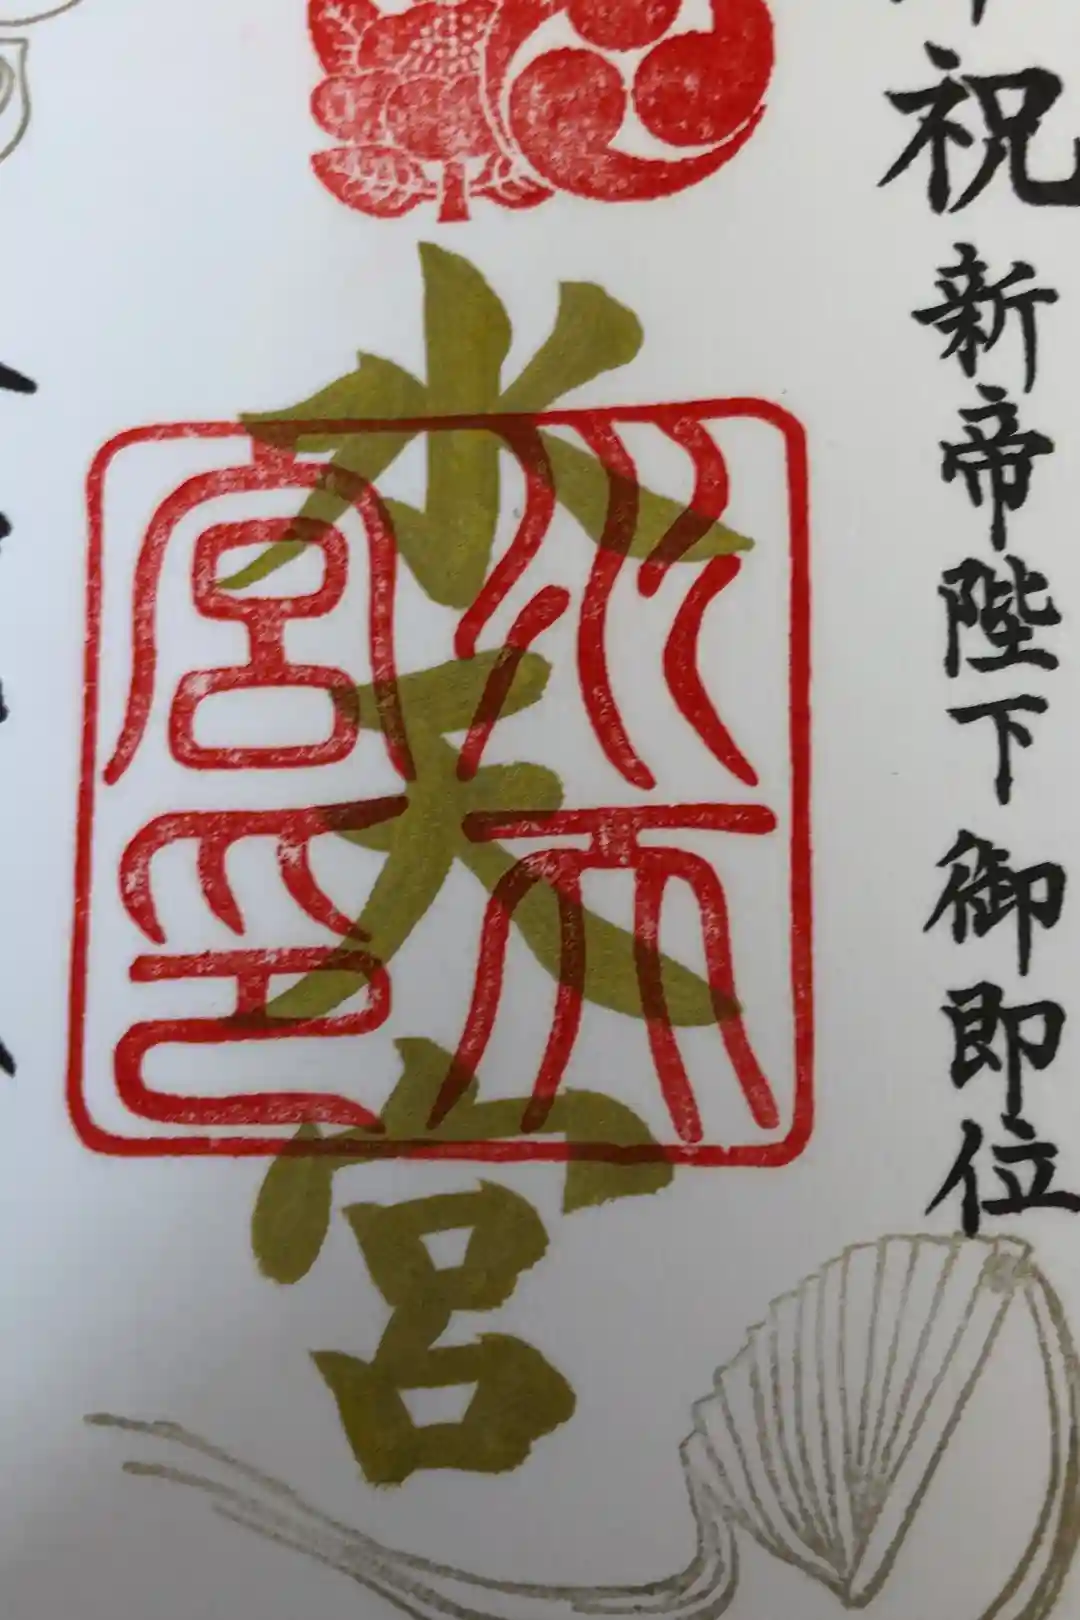 祝 新帝陛下 御即位
水天宮
水天宮印